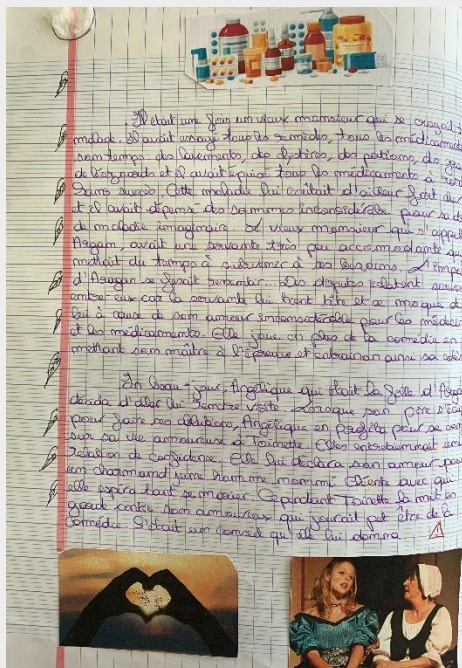 Il était une fois un vieux monsieur qui se croyait
malade. Il avait essayé tous les remèdes, tous les médicaments
son temps, des lavements, des clystères, des potions, des
et il avait épuisé tous les médicaments à
sans succès. Cette maladie lui coûtait d'ailleur fort
et il avait dépensé des sommes inconsidérable pour sa
de maladie imaginaire. Le vieux monsieur qui s'appel
Argan, avait une servante très peu accommodante qui
mettait du temps à subvenir à ses besoins. L'impa
d'Arugan se faisait ressentir... Des disputes éclatent souvent
entre eux car la servante lui tient tête et se moque de
lui à cause de son amour inconsidérable pour les médecin
et les médicaments. Elle joue en plus de la comédie en
mettant son maître à l'épreuve et entrainan ainsi sa colè
Un beau-jour, Angélique qui était la fille d'Argan
décida d'aller lui rendre visite. Lorsque son père s'
pour faire ses ablutions, Angélique en profita pour se con
sur sa vie amoureuse à Toinette. Elles entretennait une
relation de confidence. Elle lui déclara son amour pour
un charmand jeune homme nommé Cléante avec qui
elle espira tant se marier. Cependant Toinette la mit en
garde contre son amoureux qui jourait pet être de la
comédie. S'était un conseil qu'elle lui donna.